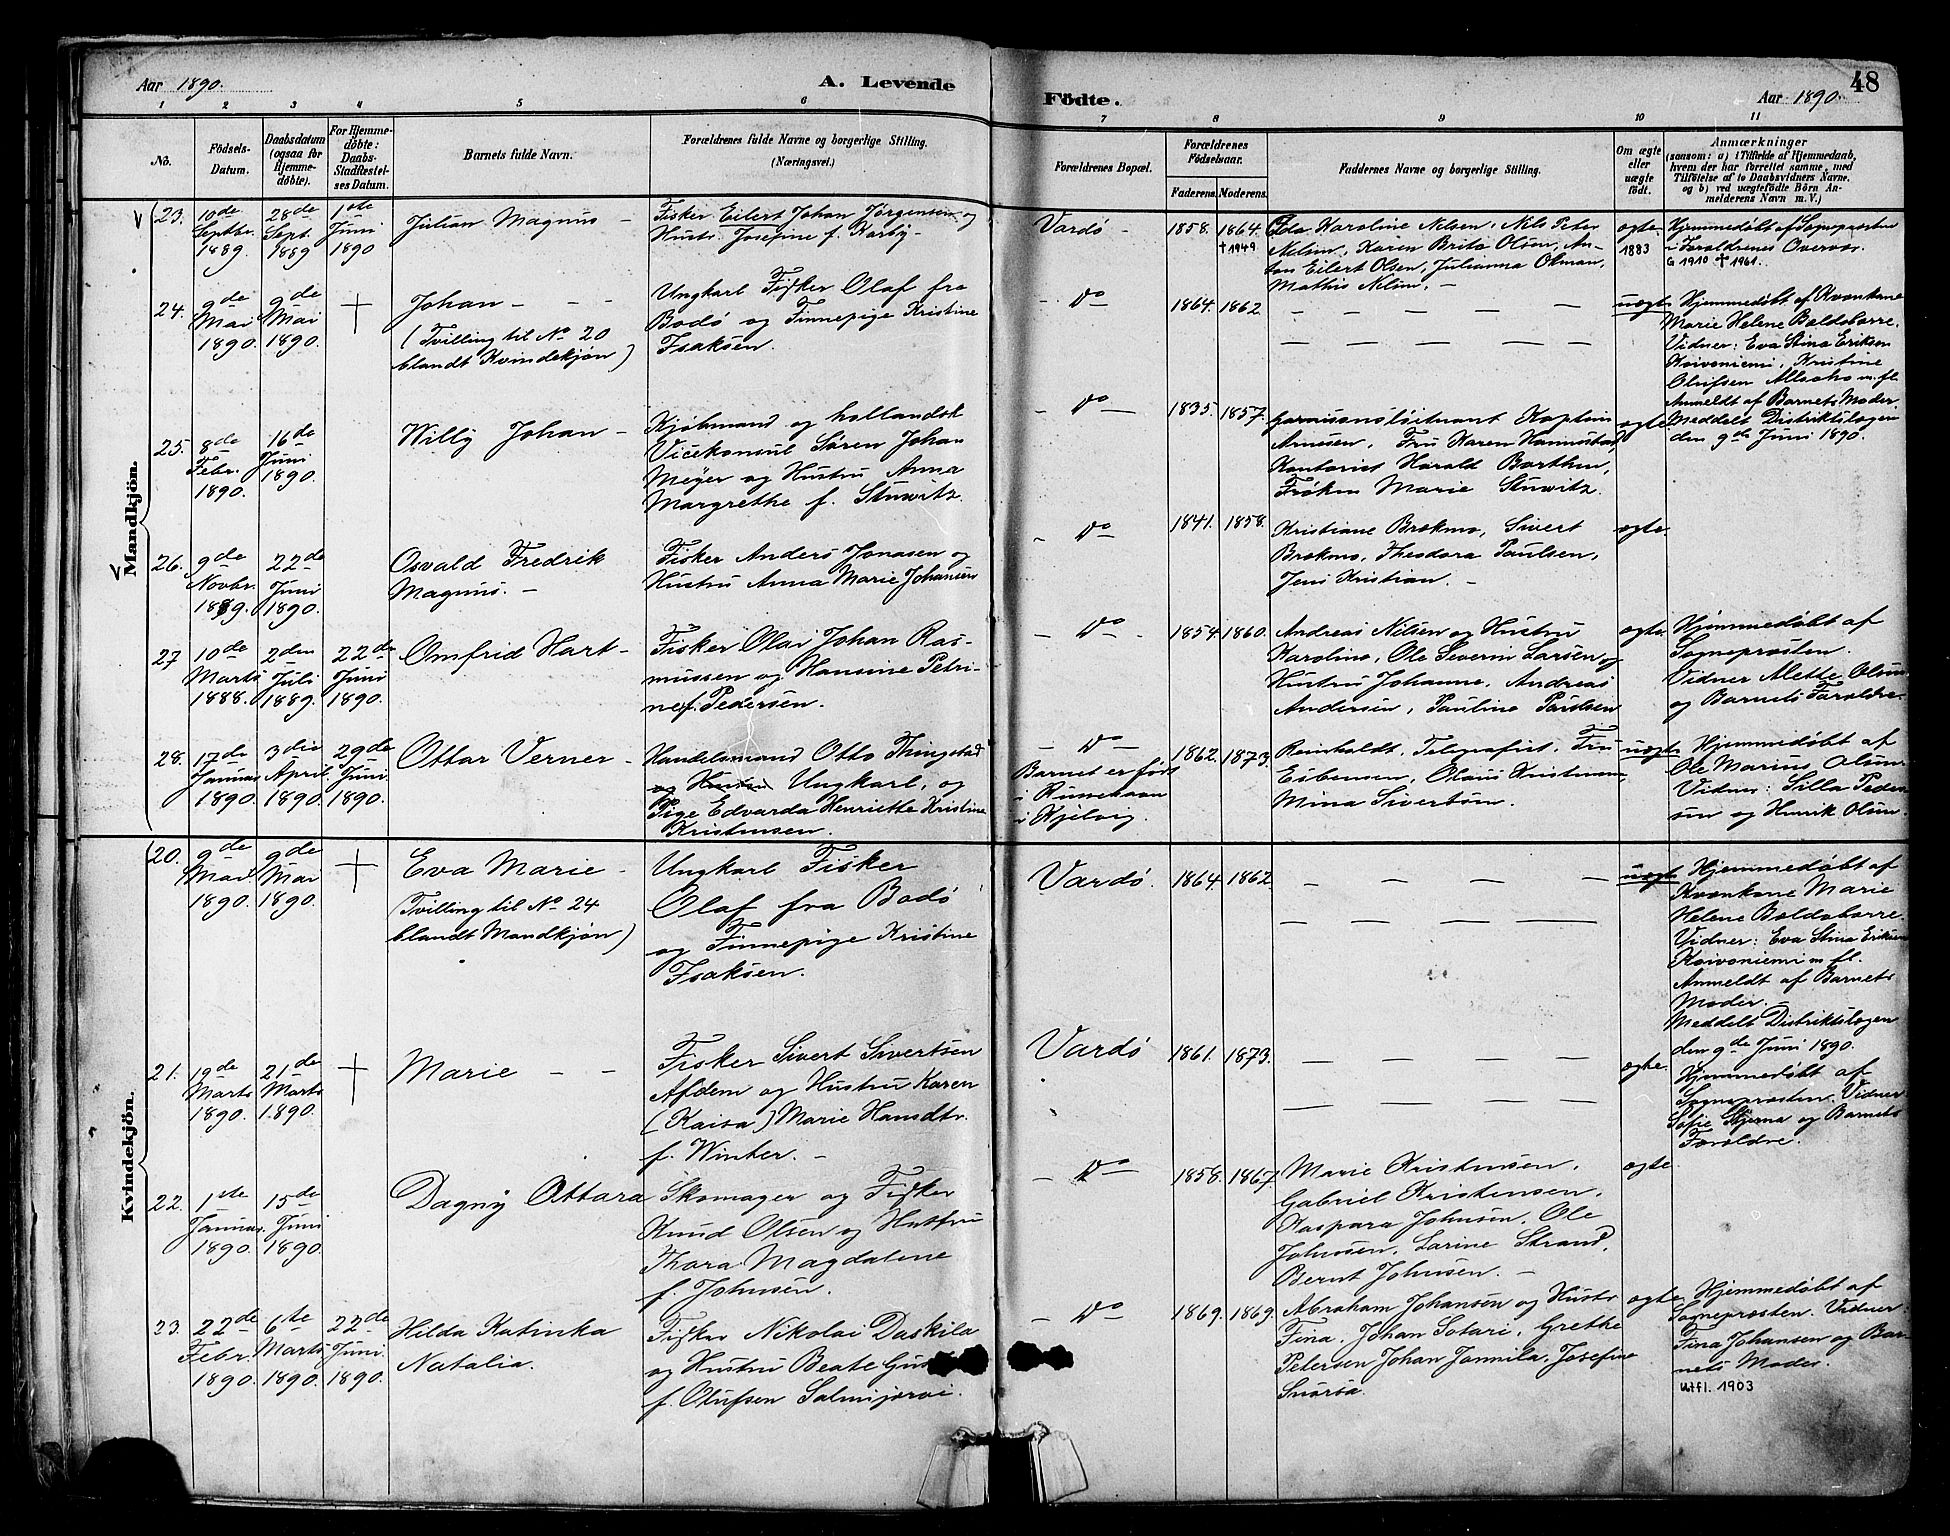 Aar 1890.
A. Levende
Födte.
Aar 1890.
48
1 2 3 4 5 6 7 8 9 10 11
No.
Födsels-Datum.
Daabsdatum (ogsaa for Hjemme-døbte).
For Hjemme-døbte: Daabs-Stadfæstel-ses Datum.
Barnets fulde Navn.
Forældrenes fulde Navne og borgerlige Stilling.
(Næringsvei.)
Forældrenes Bopæl.
Forældrenes Födselsaar.
Faderens. Moderens.
Faddernes Navne og borgerlige Stilling.
Om ægte eller uægte födt.
Anmærkninger
(saasom: a) i Tilfælde af Hjemmedaab, hvem der har forrettet samme, med Tilföielse af to Daabsvidners Navne, og b) ved uægtefödte Börn Anmelderens Navn m. V.)
Mandkjön.
23.
10de Septbr. 1889.
28de Sept. 1889
1ste Juni 1890
Julian Magnus -
Fisker Eilert Johan Jørgensen og
Hustr. Josefine f. Karby-
Vardö -
1858.
1864.
†1949
Karoline Nilsen, Nils Peter
Nilsen, Karen Brita Olsen, An-
ton Eilert Olsen, Julianna Okman,
Mathis Nilsen, -
ægte
1883
Hjemmedøbt af Sognepræsten
i Forældrenes Overvær.
G 1910 †1961.
24.
9de Mai 1890.
9de Mai 1890.
†
Johan - - -
(Tvilling til No 20
blandt Kvindekjön)
Ungkarl Fisker Olaf fra
Bodö og Finnepige Kristine
Isaksen.
- Do -
1864.
1862
uægte
Hjemmedøbt af Kvænkone
Marie Helene Baldabarre.
Vidner: Eva Stina Eriksen
Koivoniemi, Kristine
Olufsen m. fl.
Anmeldt af Barnets Moder
Meddelt Distriktslægen
den 9de Juni 1890.
25.
8de Febr. 1890.
16de Juni 1890.
Willy Johan -
Kjøbmand og hollandsk
Vicekonsul Sören Johan
Meyer og Hustru Anna
Margrethe f. Stuwitz.
- Do -
1835.
1857.
Kaptein
Arnesen, Fru Karen Hannestad,
Kontorist Harald Barthen,
Frøken Marie Stuwitz.
ægte
26.
9de Novbr. 1889.
22de Juni 1890.
Osvald Fredrik
Magnus. -
Fisker Anders Jonasen og
Hustru Anna Marie Johansen
- Do
1841.
1858.
Kristiane Brekmo, Sivert
Brekmo, Theodora Paulsen,
Jens Kristian. -
ægte.
27
10de Marts 1888.
2den Juli 1889.
22de Juni 1890.
Omfrid Hart-
Fisker Olai Johan Ras-
mussen og Hansine Petri-
ne f. Pedersen.
- Do -
1854.
1860.
Andreas Nilsen og Hustru
Karoline, Ole Severin Larsen og
Hustru Johanne, Andreas
Andersen, Pauline Paulsen
ægte.
Hjemmedøbt af
Sognepræsten.
Vidner Mette Olsen
og Barnets Forældre.
28.
17de Januar 1890.
3die April 1890.
29de Juni 1890.
Ottar Verner -
Handelsmand Otto Thingstad
Ungkarl, og
Pige Edvarda Henriette Kristine
Kristensen.
- Do -
Barnet er født
i Kjelvig.
1862.
1873.
Reinholdt, Telegrafist, Fru
Esbensen, Olaus Kristiansen
Mina Sivertsen.
uægte
Hjemmedøbt af
Ole Marius Olsen
Vidner: Silla Peder-
sen og Henrik Olsen.
Kvindekjön.
20.
9de Mai 1890.
9de Mai 1890.
†
Eva Marie -
(Tvilling til No 24
blandt Mandkjön)
Ungkarl Fisker
Olaf fra Bodö
og Finnepige Kristine
Isaksen.
Vardö.
1864
1862
uægte
Hjemmedøbt af
Kvænkone Marie
Helene Baldabarre.
Vidner: Eva Stina Eriksen
Koivoniemi m fl.
Anmeldt af Barnets
Moder. -
Meddelt Distriktslægen
den 9de Juni 1890.
21.
19de Marts 1890.
21de Marts 1890.
†
Marie - -
Fisker Sivert Sivertsen
Afdem og Hustru Karen
(Kaisa) Marie Hansdtr.
f. Winter. -
Vardö
1861.
1873.
ægte.
Hjemmedøbt af
Sognepræsten. Vidner
Sofie Stjerna og Barnets
Forældre.
22.
1ste Januar. 1890.
15de Juni 1890.
Dagny Ottara
Skomager og Fisker
Knud Olsen og Hustru
Thora Magdalene
f. Johnsen.
- Do -
1858.
1867.
Marie Kristensen,
Gabriel Kristensen,
Kaspara Johnsen, Ole
Johnsen, Larine Strand,
Bernt Johnsen. -
ægte.
23.
22de Febr. 1890.
6te Marts 1890.
22de Juni 1890.
Hilda Katinka
Natalia.
Fisker Nikolai Daskila
og Hustru Beate
f. Olufsen Salmijærvi.
- Do -
1869.
1869.
Abraham Johansen og Hustr.
Fina, Johan Sotari, Grethe
Petersen, Johan Jonnila, Josefine
ægte.
Hjemmedøbt af
Sognepræsten. Vidner:
Fina Johansen og Bar-
nets Moder.
Utfl. 1903